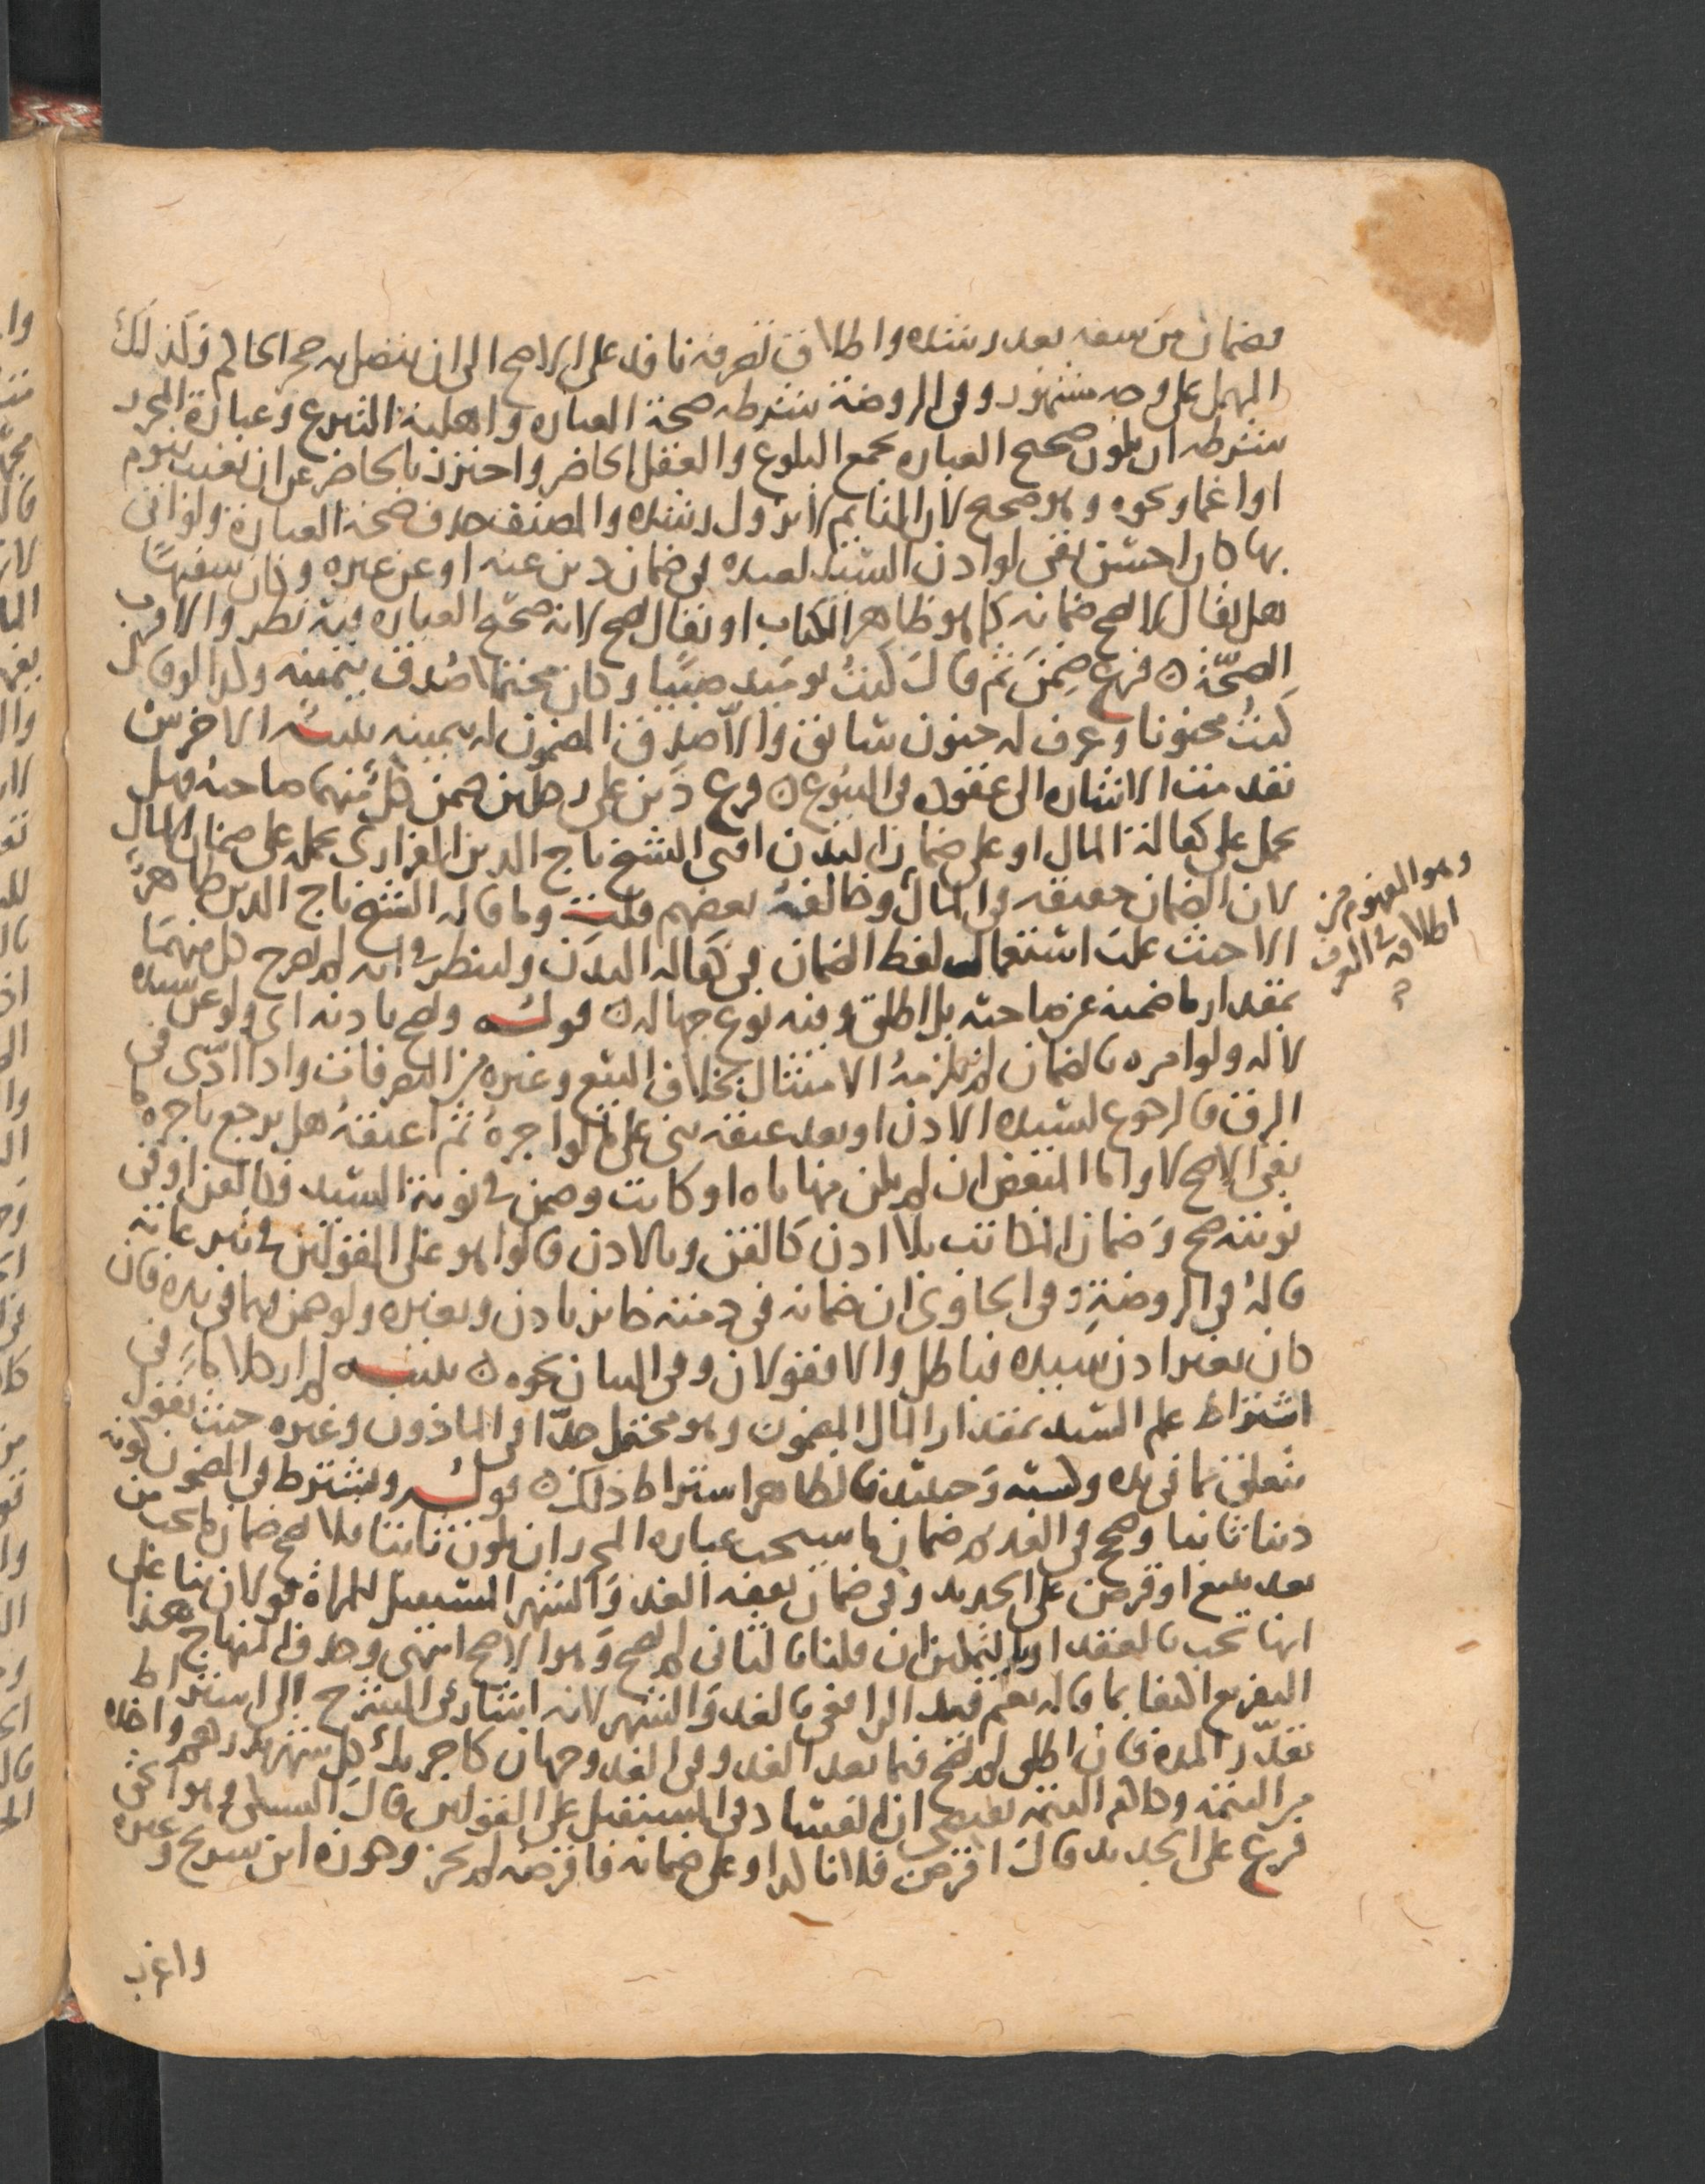 وضمان من سفه بعد رشده واطلاق تصرفه نافذ على الاصح الى ان يتصل به حجر الحاكم وكذلك
المهمل على وجه مشهور وفي الروضة شرطه صحة العباره واهلية التبرع وعبارة المحرر
شرطه ان يكون صحيح العباره بجمع البلوغ والعقل الحاضر واحترز بالحاضر عن ان يغيب بنوم
او اغما ونحوه وهو صحيح لان النايم لا يزول رشده والمصنف حذف صحة العبارة ولو اتى
بها كان احسن ففي لو اذن السيد لعبده في ضمان دين عنه او عن غيره وكان سفيها
هل يقال لا يصح ضمانه كما هو ظاهر الكتاب او يقال يصح لانه صحيح العباره فيه نظر والاقرب
الصحّة ٥ فرع ضمن ثم قال كنتُ يوميذ صبيًا وكان محتملا صُدق بيمينه وكذا لو قال
كنتُ مجنونا وعرف له جنون سابق والّا صدق المضمون له بيمينه تنبيه الاخرس
تقدمت الاشاره الى عقوده في البيوع ٥ فرع دَين على رجلين ضمن كل منهما صاحبه فهل
يحمل على كفالة المال او على ضمان البدن افتى الشيخ تاج الدين الفزاري بحمله على ضمان المال
لان الضمان حقيقه في المال وخالفهُ بعضهم قلت وما قاله الشيخ تاج الدين ظاهر
الا حيث غلب استعمال لفظ الضمان في كفاله البدن ولينظر في انه لم يصرح كل منهما
وهو المفهوم من
اطلاقه في العرف
بمقدار ما ضمنه عن صاحبه بل اطلق وفيه نوع جهاله ٥ قوله ويصح باذنه اى ولو عن سيده
لا له ولو امره بالضمان لم يلزمهُ الامتثال بخلاف البيع وغيره من التصرفات واذا ادّى في
الرق فالرجوع لسيده الاذن او بعد عتقه بني على ما لو اجرهُ ثم اعتقهُ هل يرجع باجره ما
بقي الاصح لا واما المبعض ان لم يكن مهاياه او كانت وضمن في نوبة السيد فكالقن او في
نوبته صح وَضمان المكاتب بلا اذن كالقن وبالاذن قالوا هو على القولين في تبرعاته
قالهُ في الروضةِ وفي الحاوي ان ضمانه في ذمته جايز باذن وبغيره ولو ضمن بما في يده فان
كان بغير اذن سيده فباطل والا فقولان وفي البيان نحوه ٥ تنبيه لم ار كلاما في
اشتراط علم السيد بمقدار المال المضمون وهو محتمل جدّا في الماذون وغيره حيث نقول
يتعلق بما في يده وكسبه وَحينئذ فالظاهر اشتراط ذلك ٥ قوله ويشترط في المضمون كونه
دينا ثابتا وصحح في القديم ضمان ما سيجب عباره المحرر ان يكون ثابتا فلا يصح ضمان ما يجب من
بعد ببيع او قرض على الجديد وفي ضمان نفقه الغد وَالشهر المستقبل للمراة قولان بنا على
انها تجب بالعقد او بالتمكين ان قلنا بالثاني لم يصح وَهو الاصح انتهى وحذف المنهاج هذا
التفريع اكتفا بما قاله نعم قيد الرافعي بالغد وَالشهر لانه اشار في الشرح الى اشتراط
تقدير المده فان اطلق لم يصح فيما بعد الغد وفي الغد وجهان كاجرتك كل شهر بدرهم واخذه
من التتمه وكلام التتمه يقتضي ان الفساد في المستقبل على القولين قال السبكي وهو الحق
فرع على الجديد قال اقرض فلانا كذا وعلى ضمانه فاقرضه لم يجز وجوزه ابن سريج وغيره
واغرب